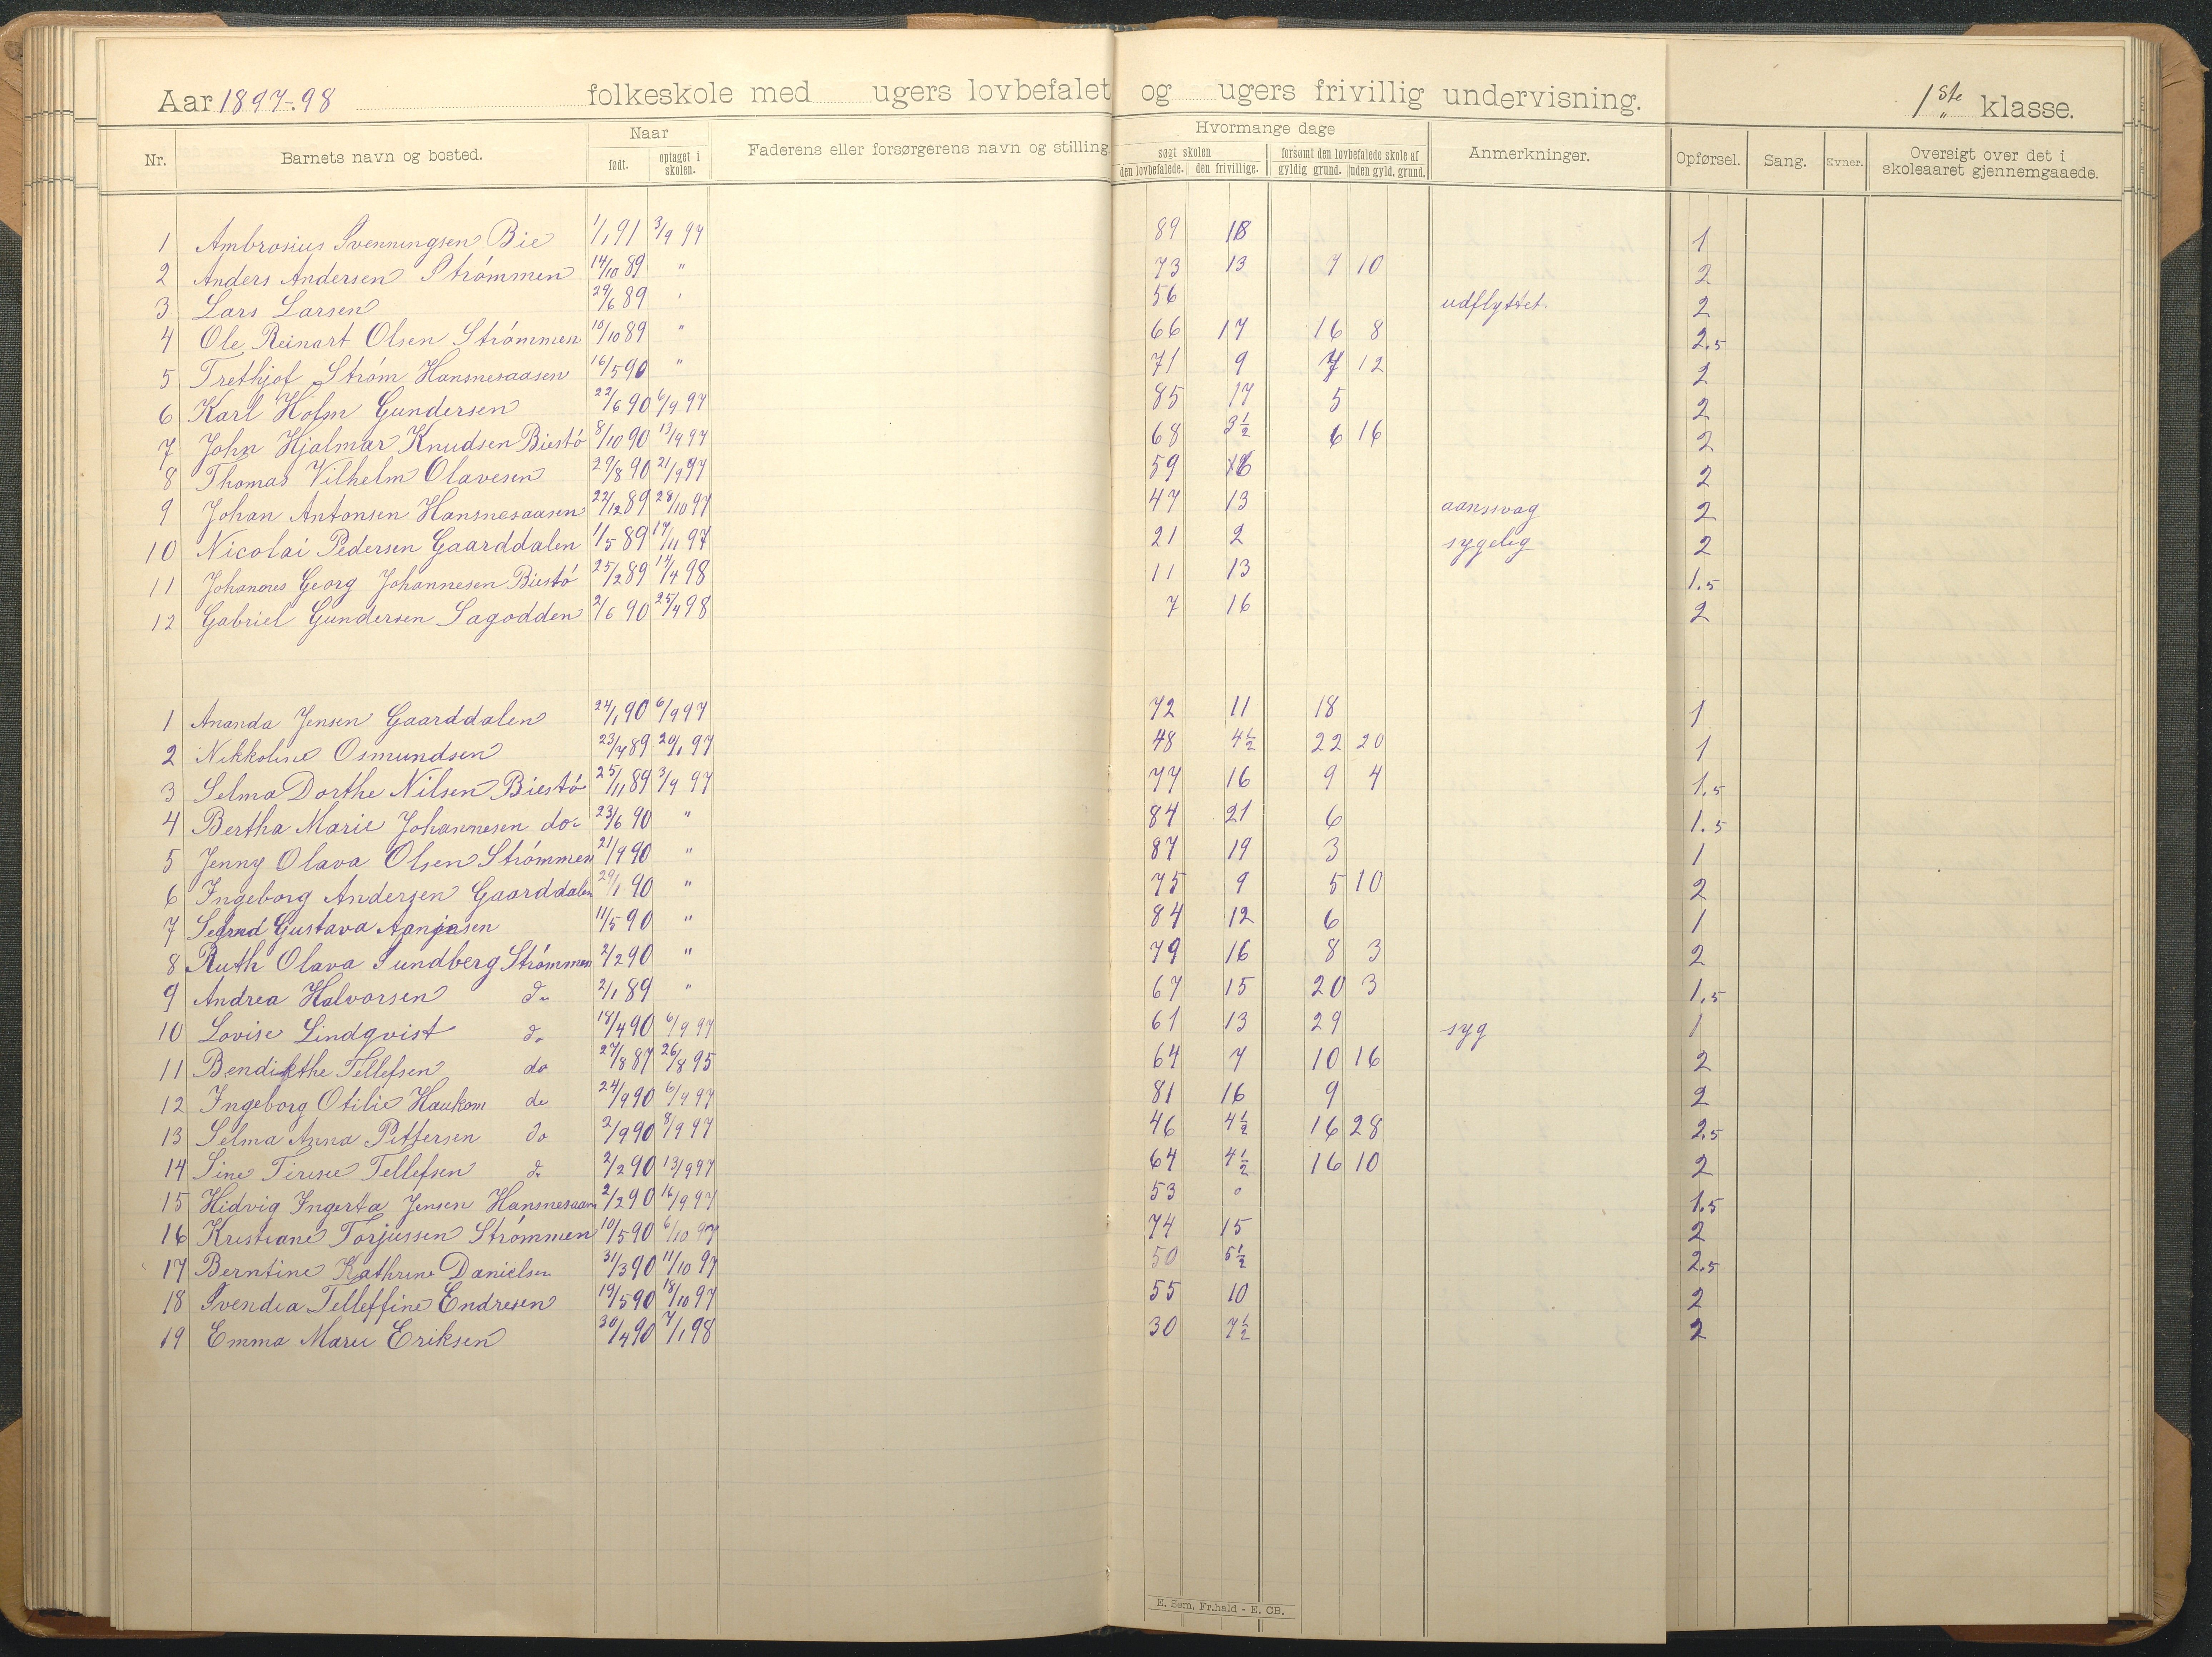 Aar 1897-98 folkeskole med ugers lovbefalet og ugers frivillig undervisning. 1ste klasse.
Nr. Barnets navn og bosted. Naar født. optaget i skolen. Faderens eller forsørgerens navn og stilling Hvormange dage søgt skolen den lovbefalede. den frivillige. forsømt den lovbefalede skole af gyldig grund. uden gyld. grund. Anmerkninger. Opførsel. Sang. Evner. Oversigt over det i skoleaaret gjennemgaaede.
1 Ambrosius Svenningsen Bie 1/1 91 3/9 97 89 18 1
2 Anders Andersen Strømmen 14/10 89 " 73 13 7 10 2
3 Lars Larsen 29/6 89 " 56 udflyttet. 2
4 Ole Reinart Olsen Strømmen 10/10 89 " 66 17 16 8 2.5
5 Trethjof Strøm Hansnesaasen 16/5 90 " 71 9 7 12 2
6 Karl Gundersen 22/6 90 6/9 97 85 17 5 2
7 John Hjalmar Knudsen Biestø 8/10 90 13/9 97 68 3½ 6 16 2
8 Thomas Vilhelm Olavesen 29/8 90 21/9 97 59 16 2
9 Johan Antonsen Hansnesaasen 22/12 89 28/10 97 47 13 aansvag 2
10 Nicolai Pedersen Gaarddalen 1/5 89 17/11 97 21 2 sygelig 2
11 Johannes Georg Johannesen Biestø 25/2 89 14/4 98 11 13 1.5
12 Gabriel Gundersen Sagodden 2/6 90 25/4 98 7 16 2
1 Ananda Jensen Gaarddalen 24/1 90 6/9 97 72 11 18 1
2 Nikkoline Osmundsen 23/7 89 20/1 97 48 4½ 22 20 1
3 Selma Dorthe Nilsen Biestø 25/11 89 3/9 97 77 16 9 4 1.5
4 Bertha Marie Johannesen do 23/6 90 " 84 21 6 1.5
5 Jenny Olava Olsen Strømmen 21/9 90 " 87 19 3 1
6 Ingeborg Andersen Gaarddalen 29/1 90 " 75 9 5 10 2
7 Gustava 11/5 90 " 84 12 6 1
8 Ruth Olava Sundberg Strømmen 2/2 90 " 79 16 8 3 2
9 Andrea Halvorsen do 2/1 89 " 67 15 20 3 1.5
10 Lovise Lindqvist do 18/4 90 6/9 97 61 13 29 syg 1
11 Bendikthe Tellefsen do 27/8 87 26/8 95 64 7 10 16 2
12 Ingeborg Otilie Haukom do 24/9 90 6/9 97 81 16 9 2
13 Selma Anna Pettersen do 2/9 90 8/9 97 46 4½ 16 28 2.5
14 Sine Terese Tellefsen do 2/2 90 13/9 97 64 4½ 16 10 2
15 Hidvig Ingerta Jensen Hansnesaasen 2/2 90 16/9 97 53 0 1.5
16 Kristiane Torjussen Strømmen 10/5 90 6/10 97 74 15 2
17 Berntine Kathrine Danielsen 31/3 90 11/10 97 50 5½ 2.5
18 Svendia Telleffine Endresen 19/5 90 18/10 97 55 10 2
19 Emma Marie Eriksen 30/4 90 7/1 98 30 7½ 2
E. Sem, Fr.hald - E. CB.